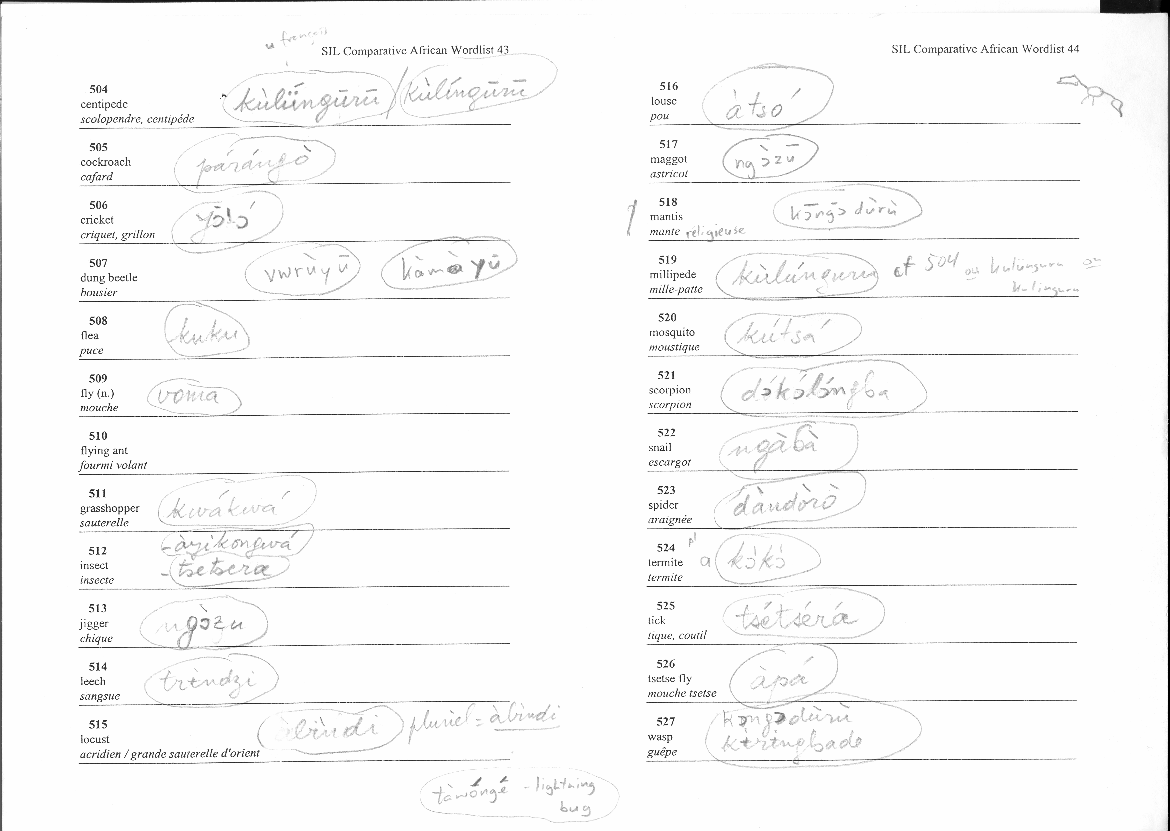 u français
SIL Comparative African Wordlist 43
504
centipede kùlüngūrū / kùlíngūrū
scolopendre, centipéde
505
cockroach párángò
cafard
506
cricket yɔ̄lɔ́
criquet, grillon
507
dung beetle vwrùyū kàmàyū
bousier
508
flea kuku
puce
509
fly (n.) voma
mouche
510
flying ant
fourmi volant
511
grasshopper kwákwá
sauterelle
512 -àyikongwá
insect -tsetsera
insecte
513
jigger ngɔ̀zu
chique
514
leech
sangsue
515
locust àbìndi pluriel = àbindi
acridien / grande sauterelle d'orient
tàwóngé - lightning
bug
SIL Comparative African Wordlist 44
516
louse àtsó
pou
517
maggot ngɔ̀zū
astricot
518
mantis kɔ̄ngɔ̄dùrù
mante religieuse
519
millipede kùlúnguru cf 504 ou kulünguru ou
mille-patte kulinguru
520
mosquito kútsá
moustique
521
scorpion dɔ́kɔ́lɔ́ngba
scorpion
522
snail ngàbà
escargot
523
spider dàndòrò
araignée
524 pl
termite a kɔ́kɔ́
termite
525
tick tsétsérá
tique, coutil
526
tsetse fly àpá
mouche tsetse
527 kɔngɔdùrù
wasp kɨrɨngbade
guêpe